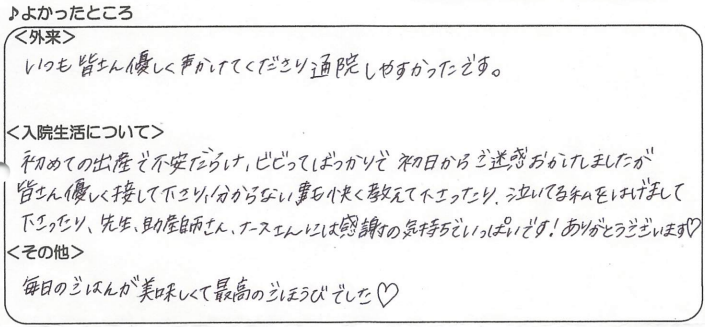 ♪よかったところ
<外来>
いつも皆さん優しく声かけてくださり通院しやすかったです。
<入院生活について>
初めての出産で不安だらけ、ビビってばっかりで初日からご迷惑おかけしましたが
皆さん優しく接して下さり、分からない事も快く教えて下さったり、泣いてる私をはげまして
下さったり、先生、助産師さん、ナースさんには感謝の気持ちでいっぱいです!ありがとうございます♡
<その他>
毎日のごはんが美味しくて最高のごほうびでした♡